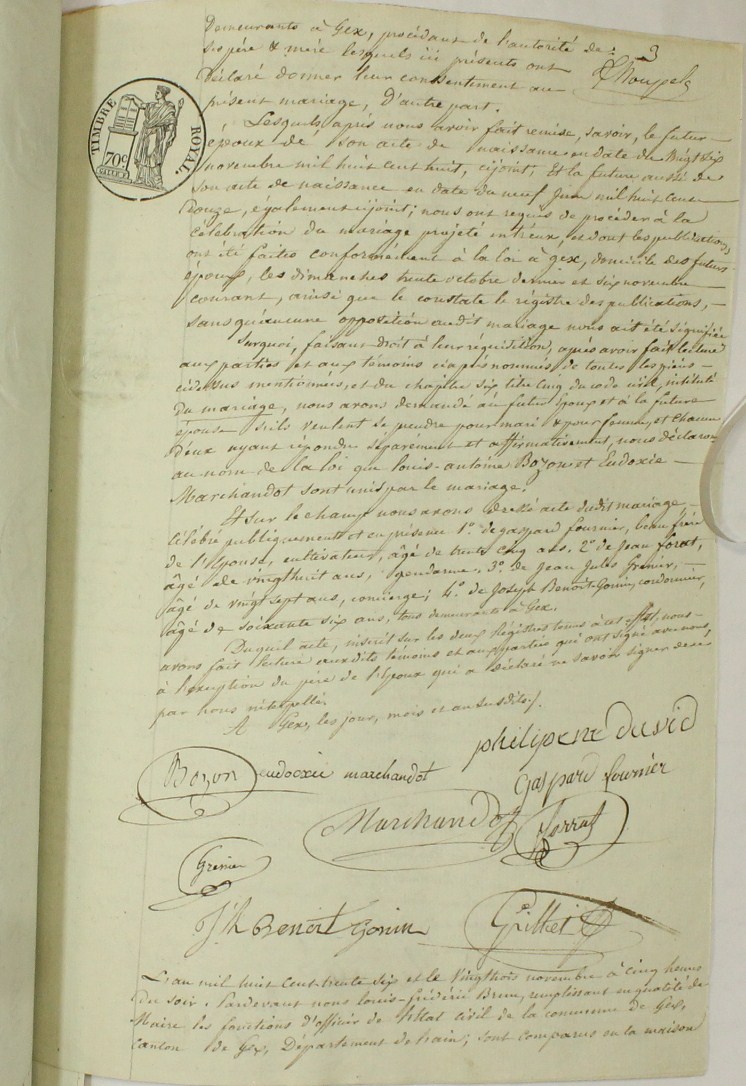 Demeurants à Gex, procédant de l'autorité de
ses père & mère lesquels ici présents ont
Déclaré donner leur consentement au
présent mariage, D'autre part.
3
TIMBRE ROYAL
70 c
Lesquels après nous avoir fait remise, savoir, le futur
epoux de son acte de naissance en date du vingt six
novembre mil huit cent huit, cijoint, Et la future aussi de
son acte de naissance en date du neuf Juin mil huit cent
Douze, également cijoint; nous ont requis de procéder à la
célébration du mariage projeté entr'eux, et dont les publications
ont été faites conformément à la loi à gex, domicile des futurs
epoux, les dimanches trente octobre dernier et six novembre
courant, ainsi que le constate le régistre des publications,
sans qu'aucune opposition audit mariage nous ait été signifiée
Surquoi, faisant droit à leur réquisition, après avoir fait lecture
aux parties et aux témoins ciaprès nommés de toutes les pièces
cidessus mentionnées, et du chapitre six titre cinq du code civil, intitulé
Du mariage, nous avons demandé au futur Epoux et à la future
épouse s'ils veulent se prendre pour mari & pour femme, et chacun
D'eux ayant répondu séparément et affirmativement, nous déclarons
au nom de la loi que louis-antoine Bozon et Eudoxie
Marchandot sont unis par le mariage.
Et sur le champ nous avons dressé acte dudit mariage
célébré publiquement et en présence 1° de gaspard fournier, beau frère
de l'Epouse, cultivateur, âgé de trente cinq ans, 2° de Jean forat,
âgé de vingthuit ans, gendarme, 3° de Jean Jules Grenier,
âgé de vingt sept ans, concierge; 4° de Joseph Benoît-Gonin, cordonnier,
âgé de soixante six ans, tous demeurants à Gex.
Duquel acte, inscrit sur les deux Régistres tenus à cet effet, nous
avons fait lecture auxdits témoins et aux parties qui ont signé avec nous,
à l'exception du père de l'Epoux qui a déclaré ne savoir signer de ce
par nous interpellé.
A Gex, les jours, mois et an susdits.
philipene david
Bozon eudocxie marchandot
Gaspard fournier
Marchandot
Grenier
Jh Benoit Gonin
L'an mil huit cent trente six et le vingtrois novembre à cinq heures
Du soir. Pardevant nous louis-frédéric Brun, remplissant en qualité de
Maire les fonctions d'officier de l'Etat civil de la commune de Gex,
canton de Gex, Département de l'ain; sont comparus en la maison